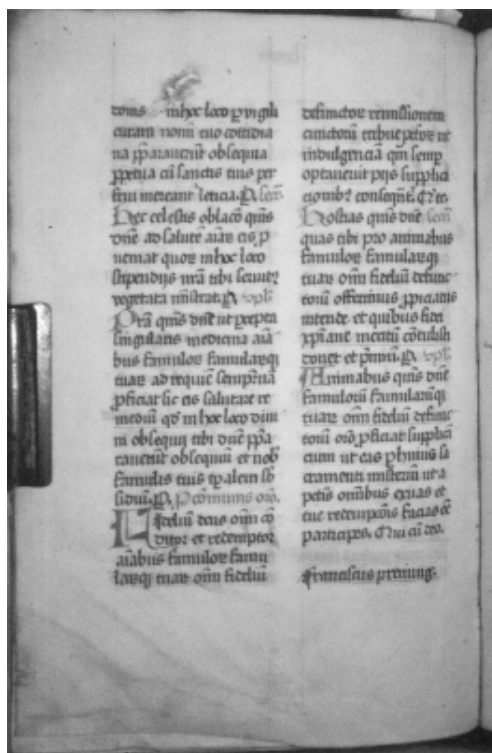 in hoc loco p vigili
curam nomi tuo cottidia
na pparauerūt obsequia
ppetua cū sanctis tuis per
frui mereant leticia. P secr.
Hec celestis oblacō qms
dne ad salutē aīaꝝ eis p
ueniat quoꝝ in hoc loco
stipendijs nrā tibi seruit
vegetata
qms dne ut pcepta
singularis medicina aīa
bus famuloꝝ famulaꝝqꝫ
tuaꝝ ad requiē sempitnā
pficiat sic eis salutare re
mediū qd in hoc loco diui
ni obsequij tibi dne ppa
rauerūt obsequium et nob
famulis tuis
sidiū. P. P cōmuns oro.
Fidelium deus oīm cō
ditor et redemptor
aīabus famuloꝝ famu
laꝝqꝫ tuaꝝ oīm fideliū
defunctoꝝ remissionem
cunctoꝝ tribue pctoꝝ ut
indulgenciā qm semp
optauerūt pijs supplica
cionibꝫ consequant̄.
Hostias qms dne secr.
quas tibi pro animabus
famuloꝝ famulaꝝqꝫ
tuaꝝ oīm fidelium defunc
toꝝ offerimus ppiciatus
intende et quibus fidei
xpiane meritū cōtulisti
dones et pmiū. P.
Animabus qms dne
famuloꝝ famulaꝝqꝫ
tuaꝝ oīm fideliū defunc
toꝝ oro pficiat supplicā
cium ut eas p huius sa
cramenti misteriū ut a
pctis omībus exuas et
tue redempcōis facias eē
participes. Qui cū deo.
Franciscus